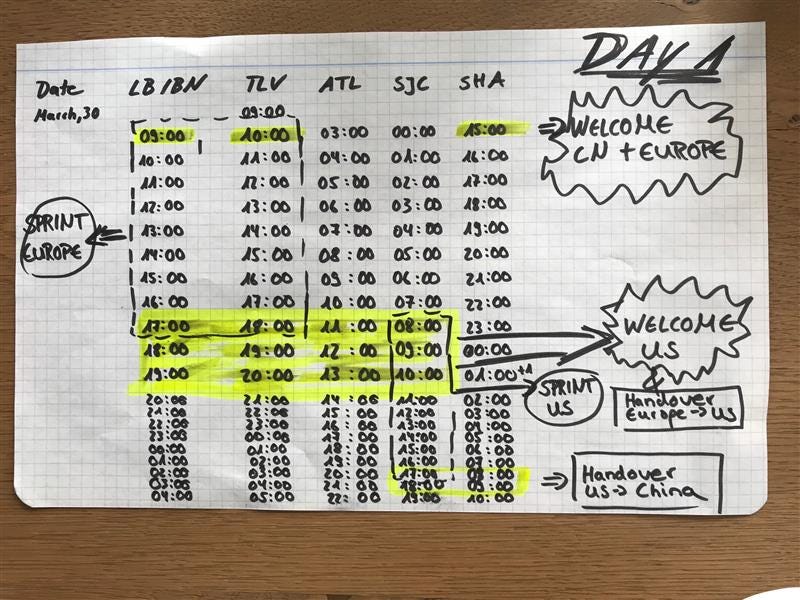 DAY 1
Date LB/IBN TLV ATL SJC SHA
March, 30 09:00
09:00 10:00 03:00 00:00 15:00
10:00 11:00 04:00 01:00 16:00
11:00 12:00 05:00 02:00 17:00
12:00 13:00 06:00 03:00 18:00
13:00 14:00 07:00 04:00 19:00
14:00 15:00 08:00 05:00 20:00
15:00 16:00 09:00 06:00 21:00
16:00 17:00 10:00 07:00 22:00
17:00 18:00 11:00 08:00 23:00
18:00 19:00 12:00 09:00 00:00
19:00 20:00 13:00 10:00 01:00+1
20:00 21:00 14:00 11:00 02:00
21:00 22:00 15:00 12:00 03:00
22:00 23:00 16:00 13:00 04:00
23:00 00:00 17:00 14:00 05:00
00:00 01:00 18:00 15:00 06:00
01:00 02:00 19:00 16:00 07:00
02:00 03:00 20:00 17:00 08:00
03:00 04:00 21:00 18:00 09:00
04:00 05:00 22:00 19:00 10:00
SPRINT
EUROPE
WELCOME
CN + EUROPE
WELCOME
US
SPRINT
US
Handover
Europe → US
Handover
US → China